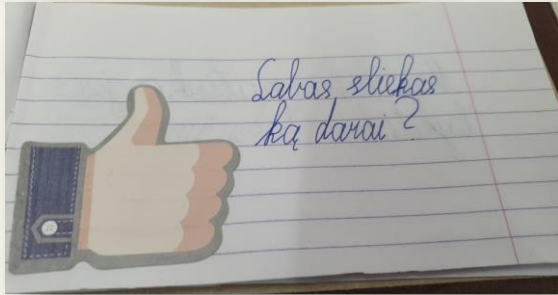 Labas sliekas
ką darai?